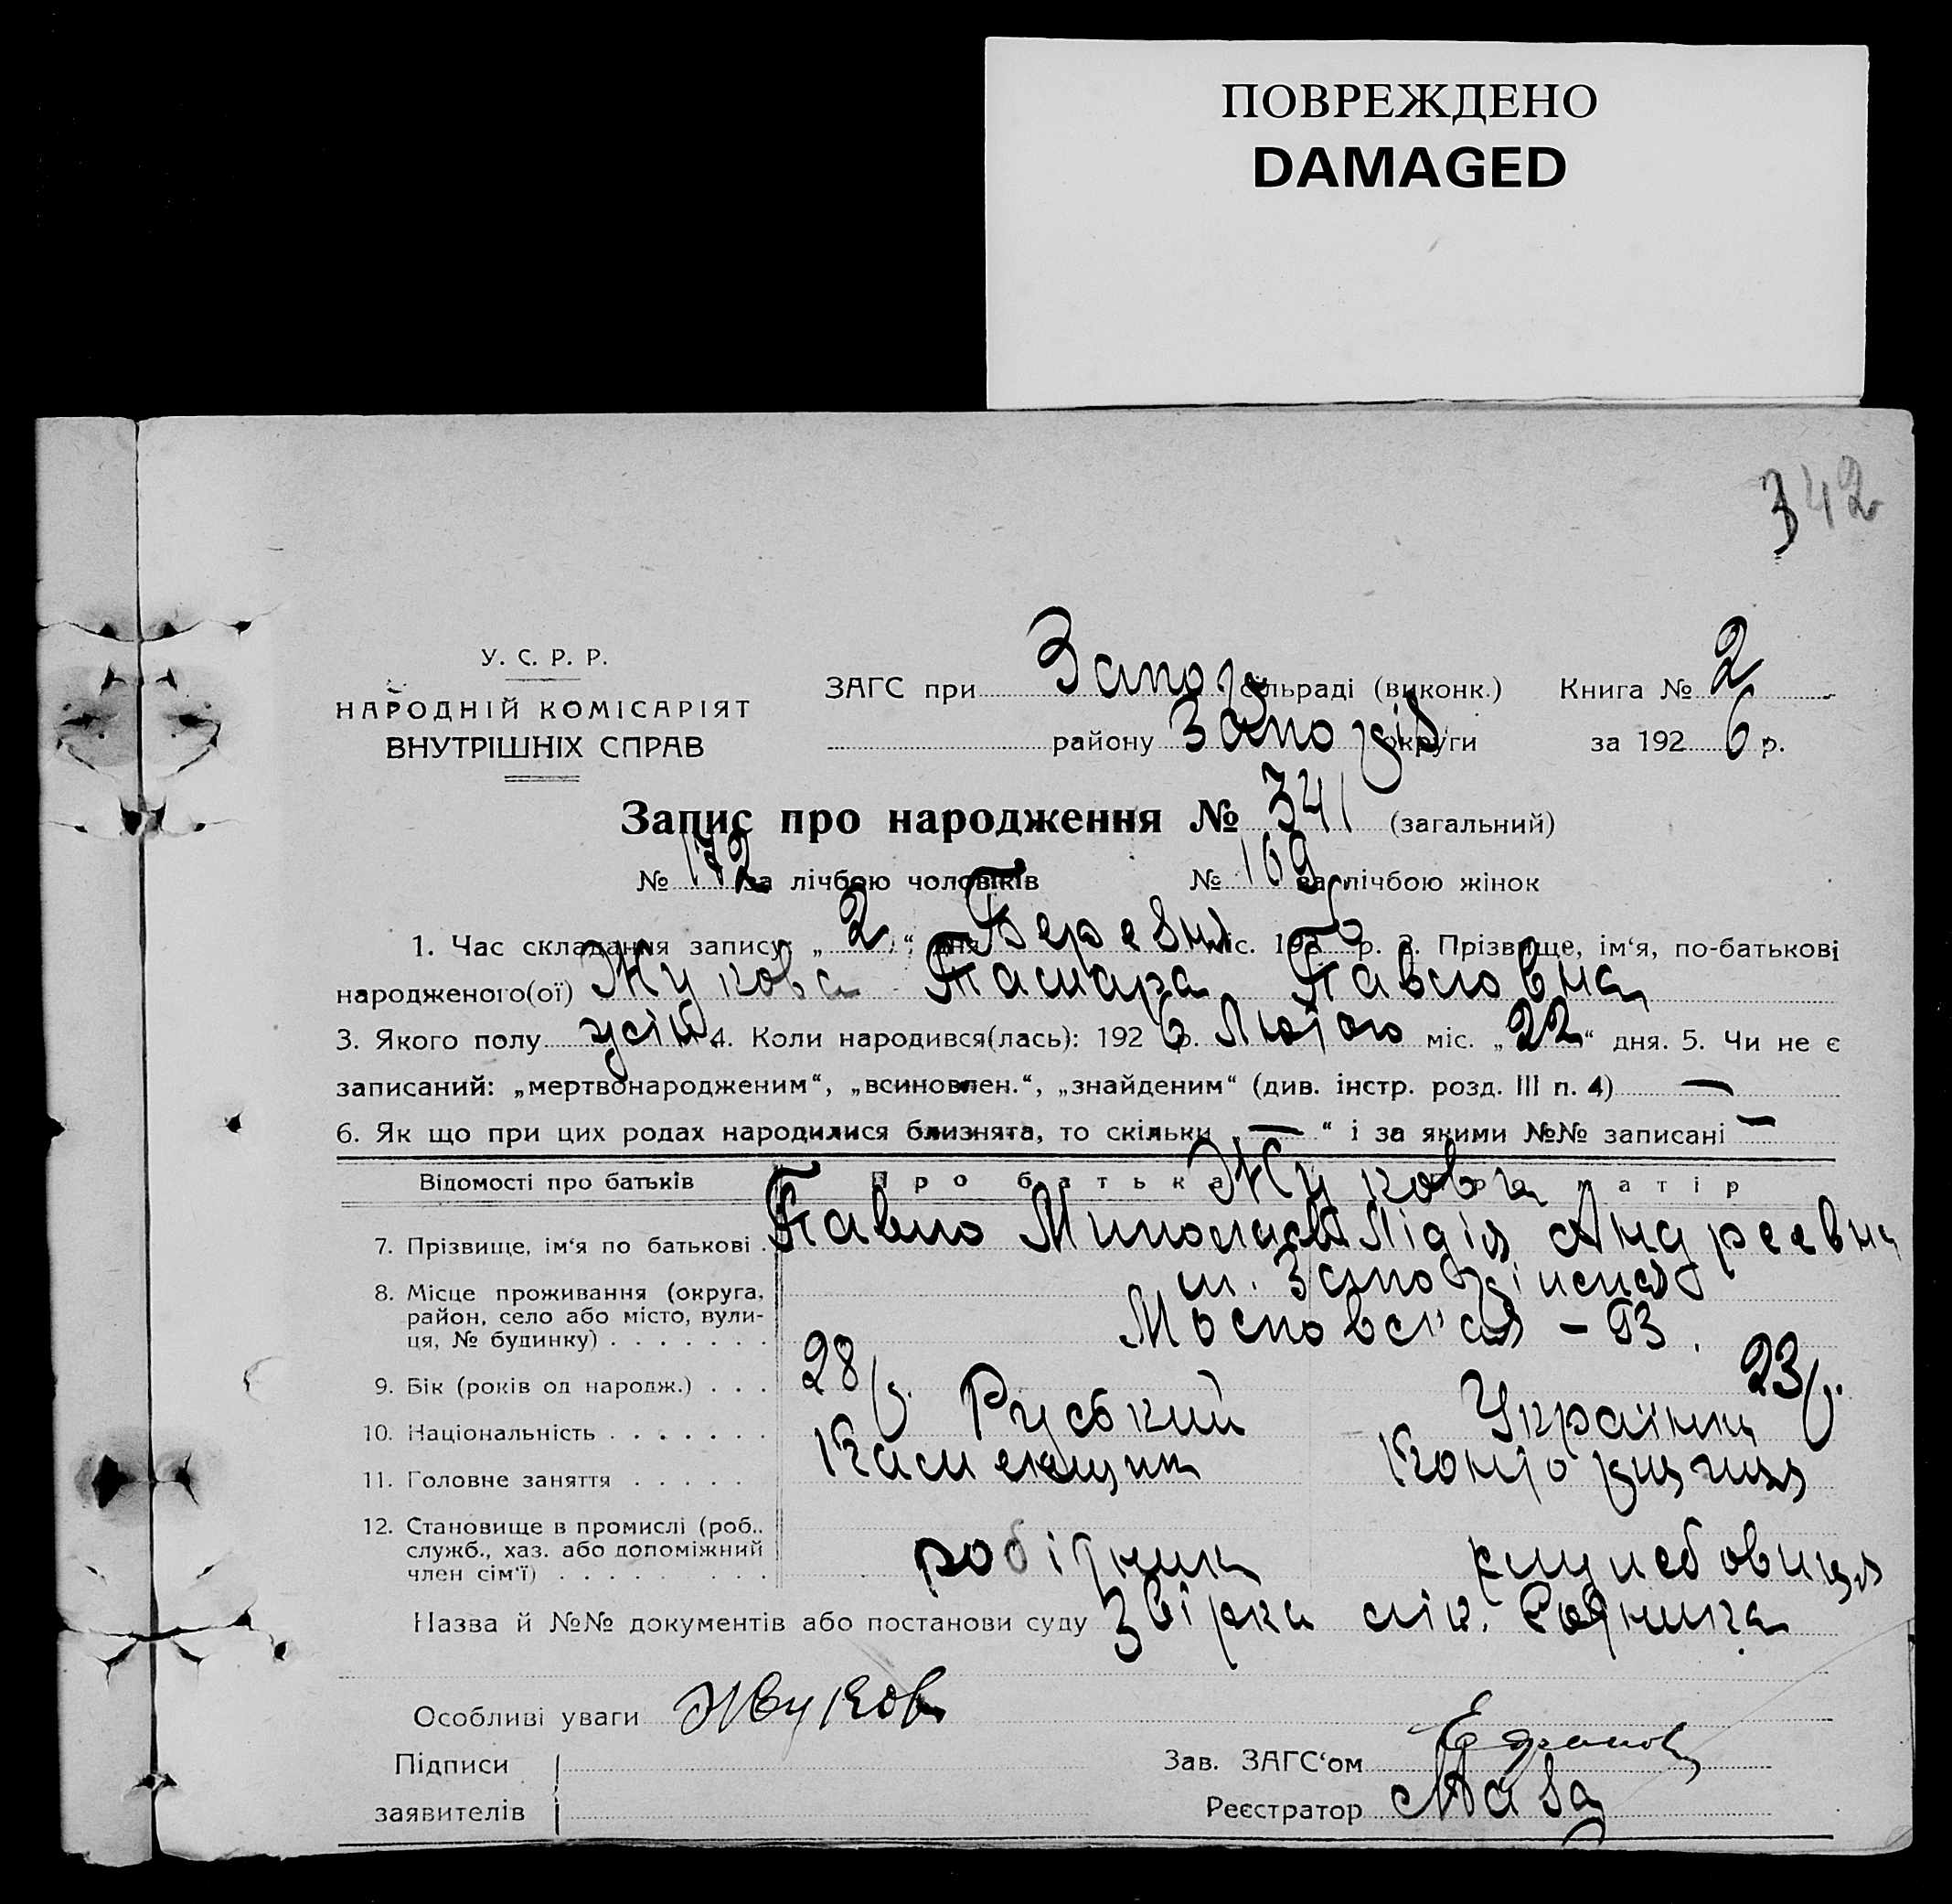 ПОВРЕЖДЕНО
DAMAGED
342
У. С. Р. Р.
НАРОДНІЙ КОМІСАРІЯТ
ВНУТРІШНІХ СПРАВ
ЗАГС при Запоріз сільраді (виконк.) Книга № 2
району Запорізь округи за 1926 р.
Запис про народження № 341 (загальний)
№ 172 за лічбою чоловіків № 169 за лічбою жінок
1. Час складання запису: „2“ дня Березня міс. 1926 р. 2. Прізвище, ім‘я, по-батькові
народженого(ої) Жукова Тамара Павловна
3. Якого полу жін 4. Коли народився(лась): 1926 р. Лютого міс. „22“ дня. 5. Чи не є
записаний: „мертвонародженим“, „всиновлен.“, „знайденим“ (див. інстр. розд. III п. 4) —
6. Як що при цих родах народилися близнята, то скільки „—“ і за якими №№ записані —
Відомості про батьків Про батька Про матір
Жукова
7. Прізвище, ім‘я по батькові . Павло Лідія Андреевна
8. Місце проживання (округа, м.
район, село або місто, вули-
ця, № будинку) . . . . . . . Московська – 93.
9. Вік (років од народж.) . . . 28 р. 23 р.
10. Національність . . . . . . . Руський Українка
11. Головне заняття . . . . . Каменщик Конторщиця
12. Становище в промислі (роб.,
служб., хаз. або допоміжний
член сім‘ї) . . . . . . . . . робітник службовиця
Назва й №№ документів або постанови суду Звірка лік.
Особливі уваги Жуков
Підписи
заявителів
Зав. ЗАГС‘ом
Реєстратор